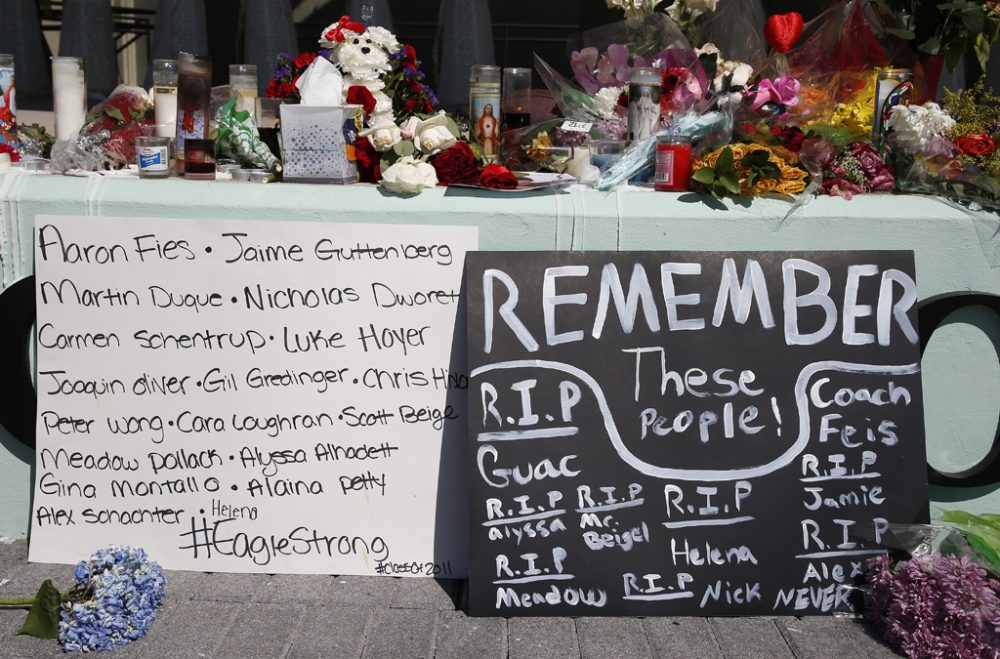 Aaron Fies • Jaime Guttenberg
Martin Duque • Nicholas Dworet
Carmen Schentrup • Luke Hoyer
Joaquin oliver • Gil Gredinger • Chris Hixo
Peter wong • Cara Loughran • Scott Beige
Meadow pollack • Alyssa Alhadett
Gina Montallo • Alaina petty
Alex Schachter • Helena
#EagleStrong
#classof2011
REMEMBER
These
People!
R.I.P
Guac
R.I.P
alyssa
R.I.P
Mr.
Beigel
R.I.P
Meadow
R.I.P
Helena
R.I.P
Nick
Coach
Feis
R.I.P
Jamie
R.I.P
Alex
NEVER